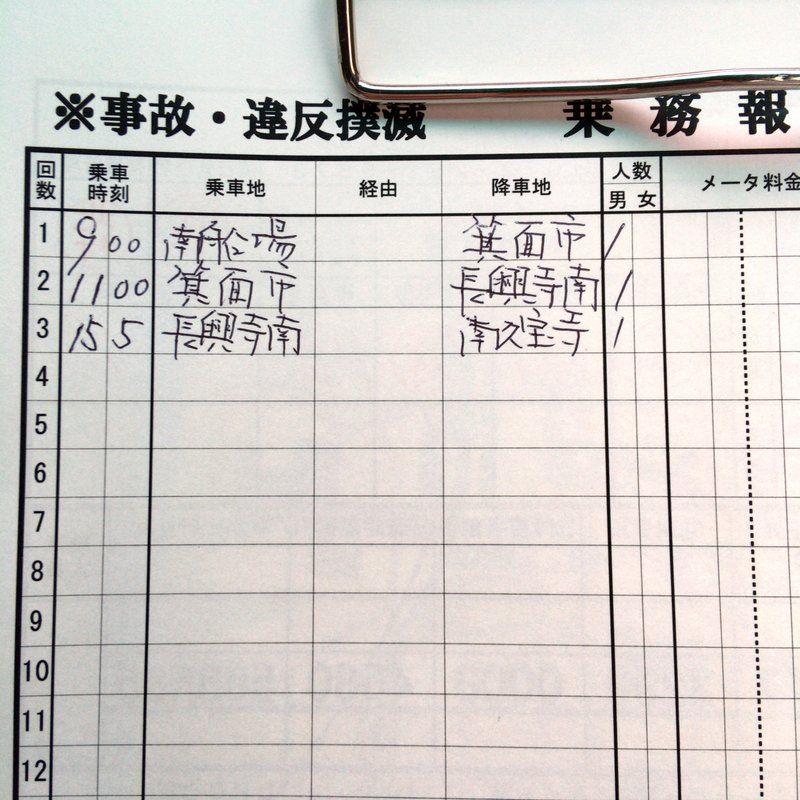 ※事故・違反撲滅 乗務報
回数 乗車時刻 乗車地 経由 降車地 人数 男 女 メータ料金
1 900 南船場 箕面市 1
2 1100 箕面市 長興寺南 1
3 155 長興寺南 南久宝寺 1
4
5
6
7
8
9
10
11
12